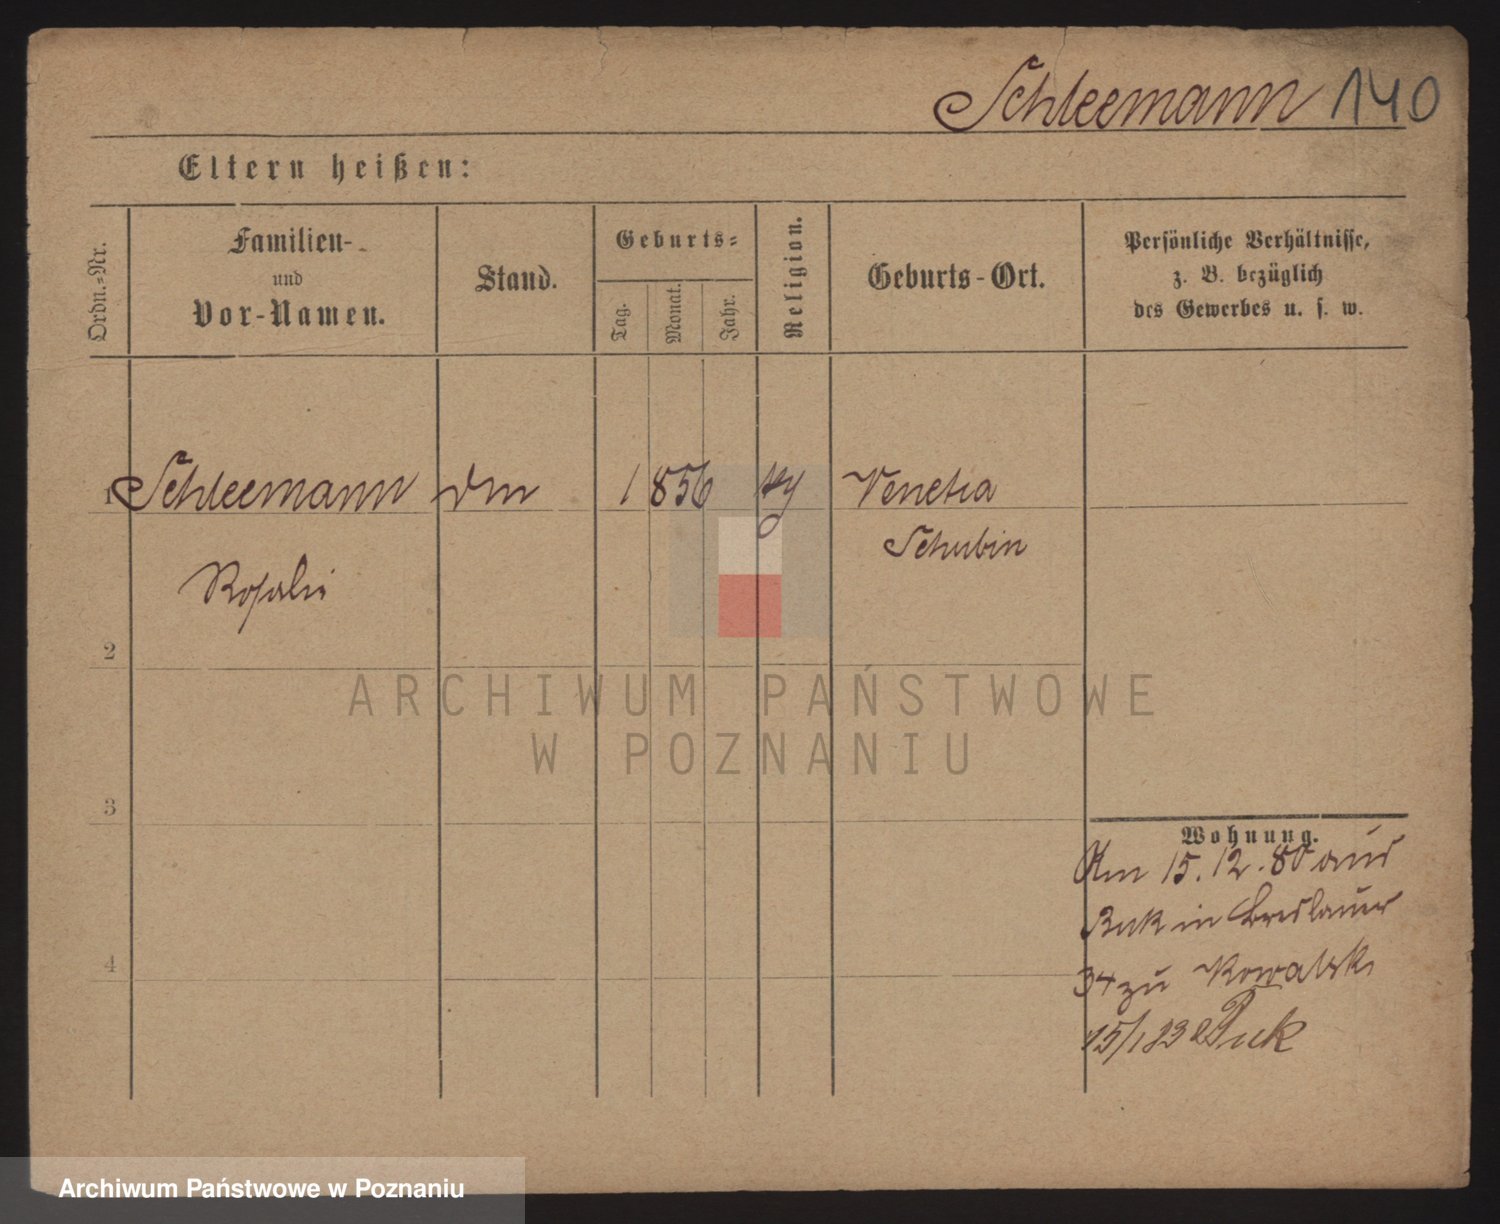 Schleemann 140
Eltern heißen:
Ordn.-Nr.
Familien-
und
Vor-Namen.
Stand.
Geburts-
Tag.
Monat.
Jahr.
Religion.
Geburts-Ort.
Persönliche Verhältnisse,
z. B. bezüglich
des Gewerbes u. s. w.
1 Schleemann 1856 Venetia
Schubin
Rosalie
2
ARCHIWUM PAŃSTWOWE
W POZNANIU
3
Wohnung.
Am 15.12.80 aus
Buk in Breslauer
34 zu Kowalski
4
15/1 83 Buk
Archiwum Państwowe w Poznaniu